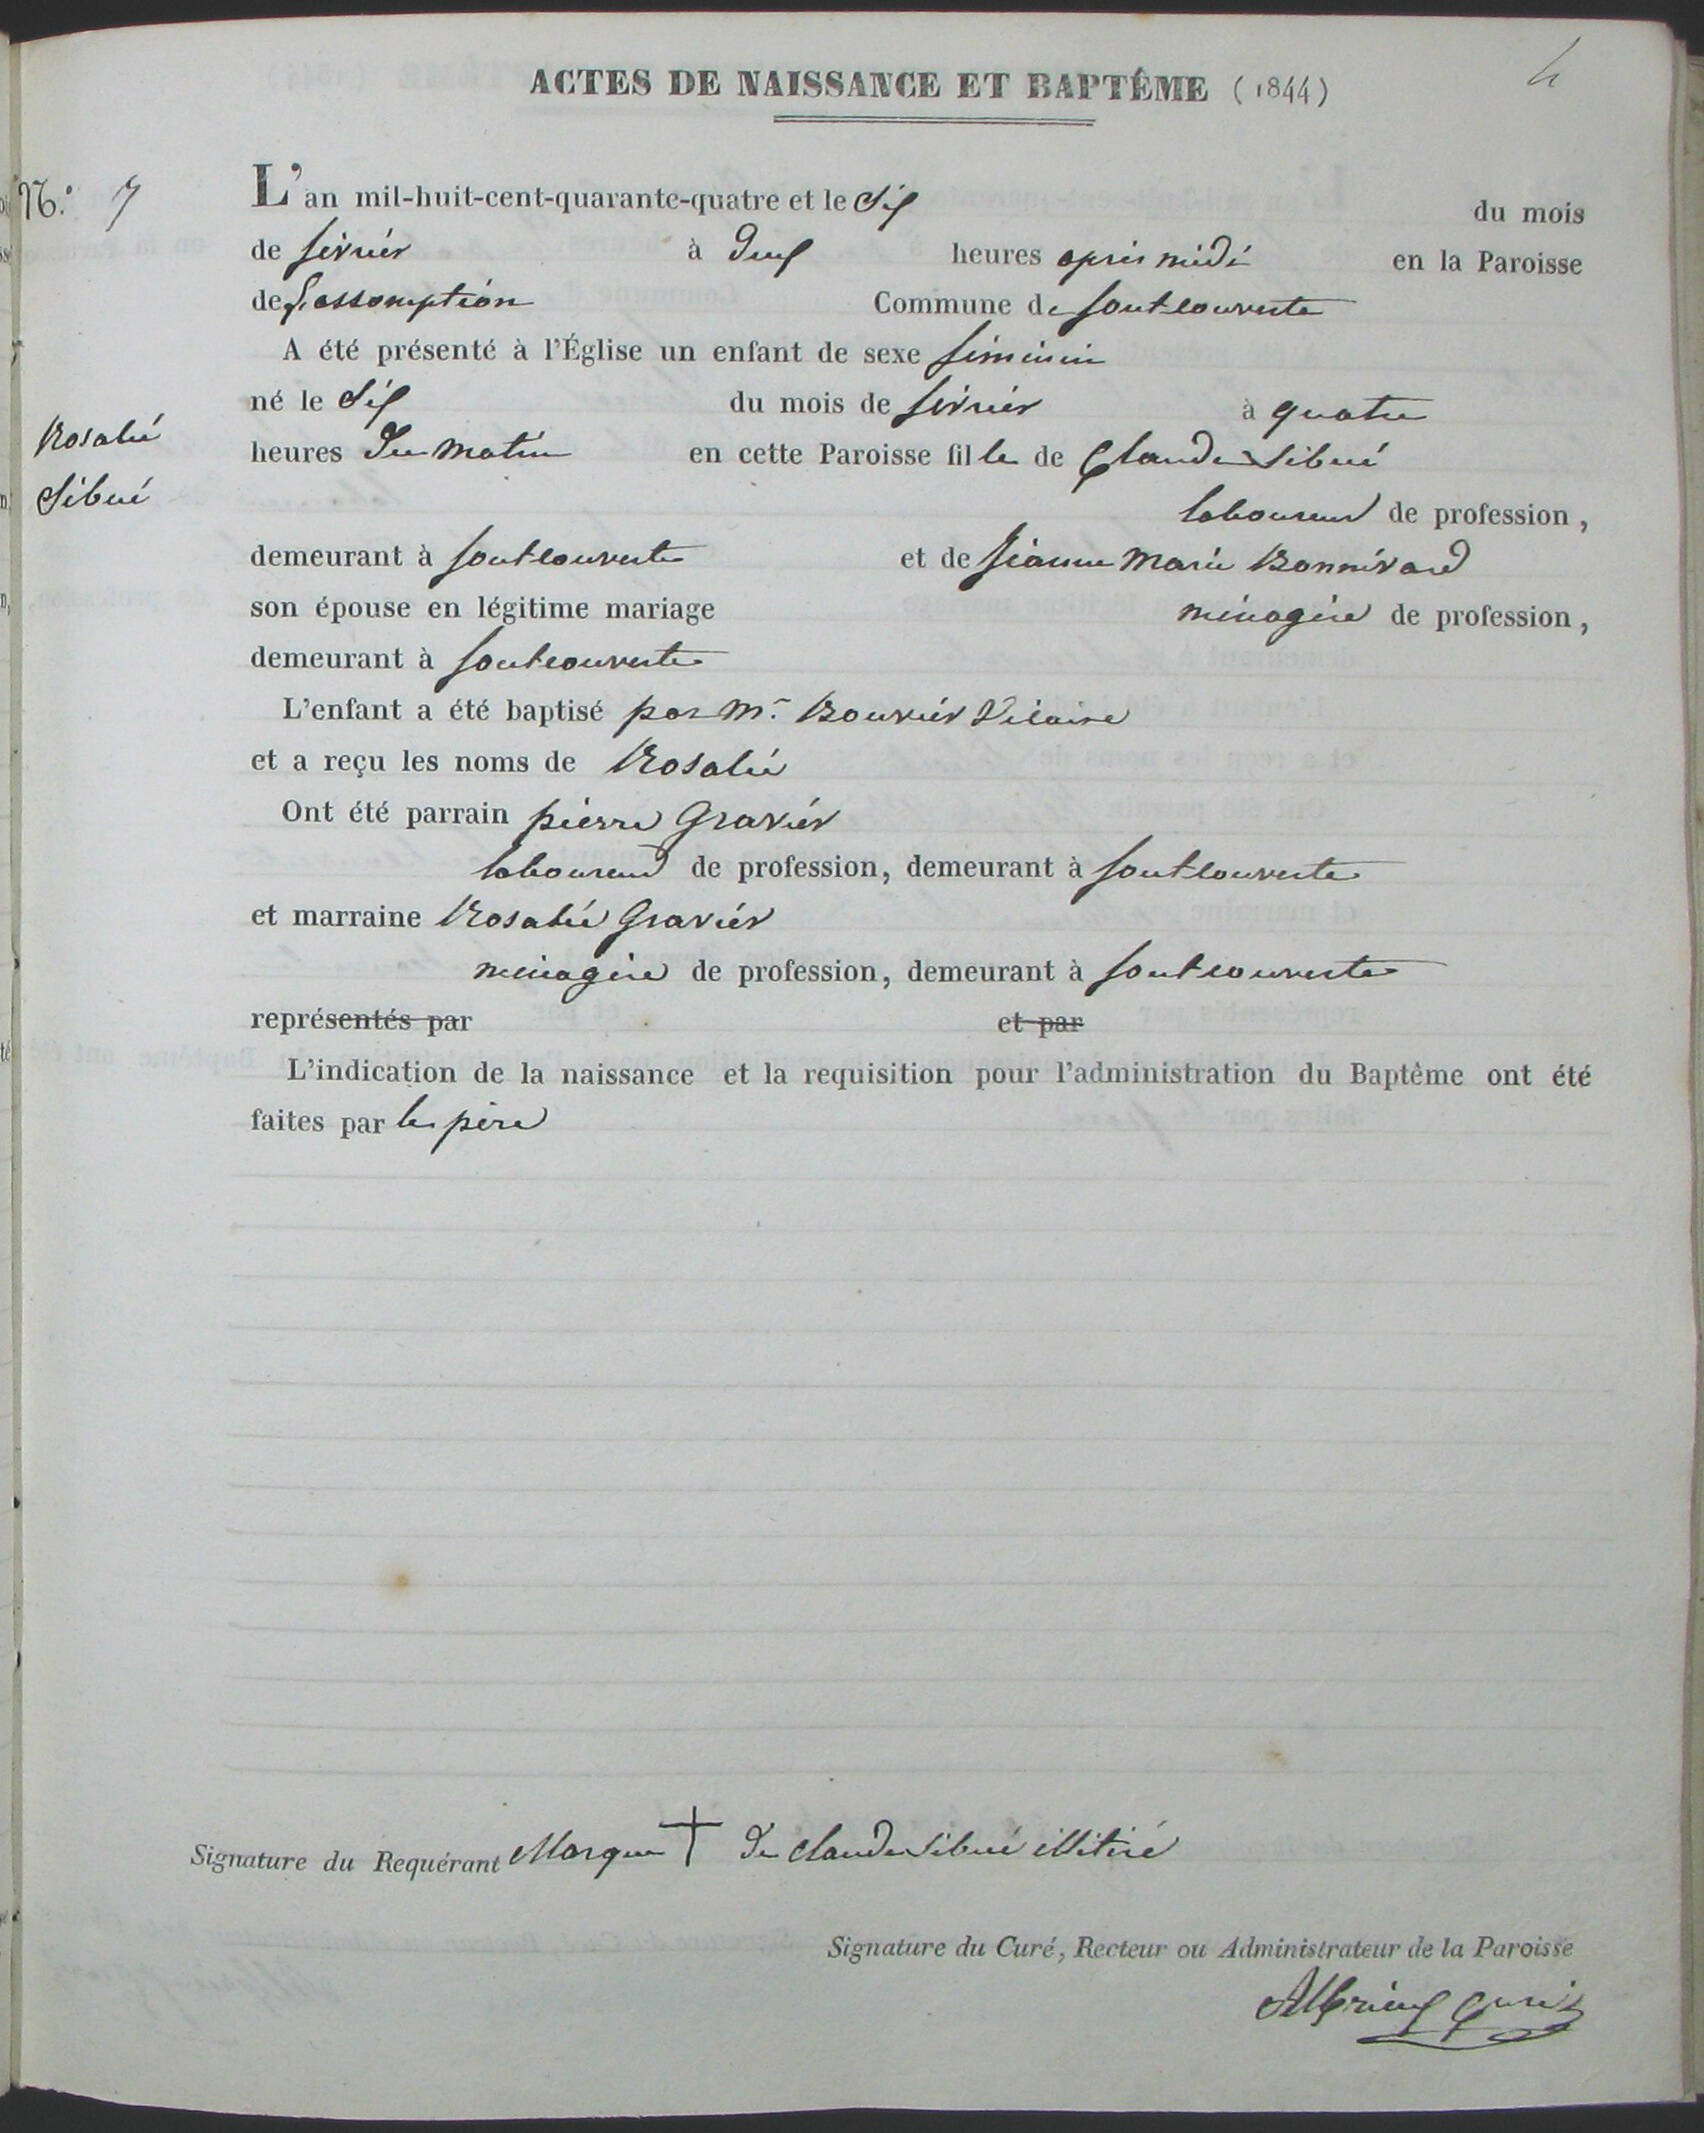 ACTES DE NAISSANCE ET BAPTÊME (1844)
4
N.° 7
L'an mil-huit-cent-quarante-quatre et le Six du mois
de février à deux heures après midi en la Paroisse
de L'assomption Commune de fontcouverte
A été présenté à l'Église un enfant de sexe féminin
né le Six du mois de février à quatre
Rosalie
Sibué
heures du matin en cette Paroisse fille de Claude Sibué
laboureur de profession,
demeurant à fontcouverte et de jeanne marie Bonnivard
son épouse en légitime mariage ménagère de profession,
demeurant à fontcouverte
L'enfant a été baptisé par Mr. Bouvier Vicaire
et a reçu les noms de Rosalie
Ont été parrain pierre gravier
laboureur de profession, demeurant à fontcouverte
et marraine Rosalie gravier
ménagère de profession, demeurant à fontcouverte
représentés par et par
L'indication de la naissance et la requisition pour l'administration du Baptême ont été
faites par le père
Signature du Requérant Marque † de claude Sibué illitiré
Signature du Curé, Recteur ou Administrateur de la Paroisse
Albrieux curé